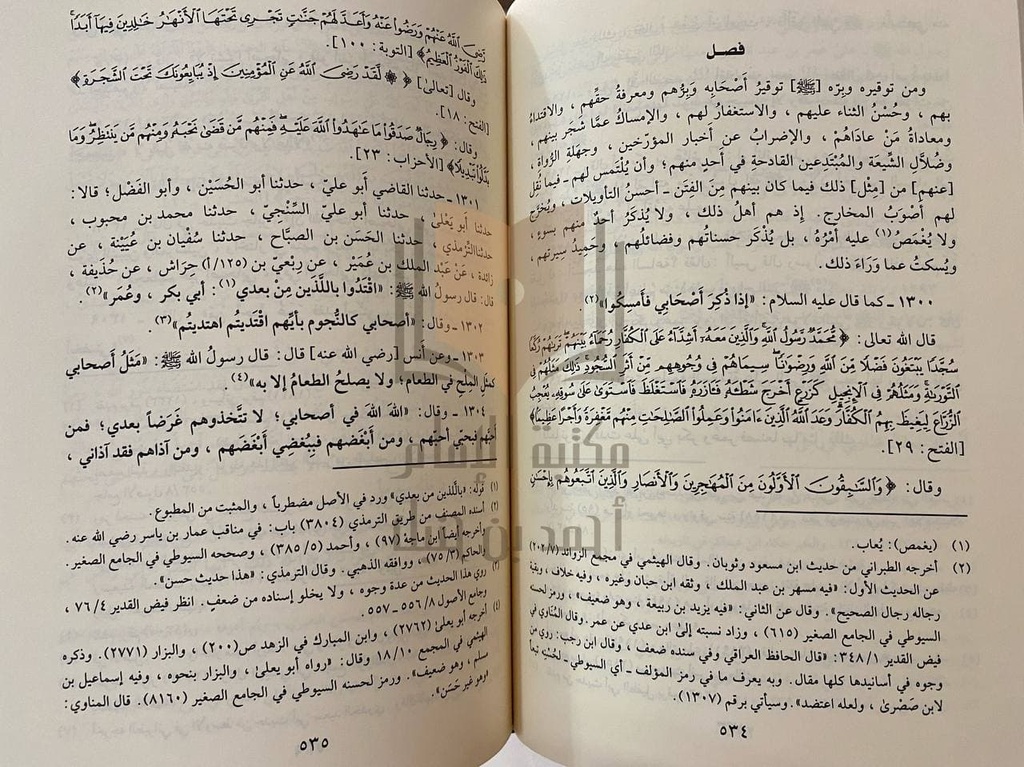 فصل
ومن توقيره وبِرّه [ﷺ] توقيرُ أَصْحَابِه وَبِرُّهم ومعرفةُ حقِّهم ، والاقتداءُ
بهم ، وحُسْنُ الثناء عليهم ، والاستغفارُ لهم ، والإمساكُ عمَّا شَجَر بينهم ،
ومعاداةُ مَنْ عادَاهُمْ ، والإضرابُ عن أخبار المؤرّخين ، وجهلةِ الرُّواةِ ،
وضُلَّالِ الشِّيعَة والمُبْتَدعين القادحةِ في أحدٍ منهم؛ وأن يُلْتَمس لهم ـ فيما نُقِل
[عنهم] من [مِثْل] ذلك فيما كان بينهم مِنَ الفِتَن ـ أحسنُ التأويلات ، ويُخرَّج
لهم أَصْوَبُ المخارج. إذ هم أهلُ ذلك ، ولا يُذكَرُ أحدٌ منهم بسوءٍ ،
ولا يُغْمَصُ (١) عليه أمْرُهُ ، بل يُذْكَر حسناتُهم وفضائلُهم ، وحَمِيدُ سِيرتِهم ،
ويُسكتُ عما وَرَاءَ ذلك.
١٣٠٠ ـ كما قال عليه السلام: «إذا ذُكِرَ أصْحَابي فأَمسِكُوا»(٢)
قال الله تعالى: ﴿ مُّحَمَّدٌ رَّسُولُ اللَّهِ وَالَّذِينَ مَعَهُ أَشِدَّاءُ عَلَى الْكُفَّارِ رُحَمَاءُ بَيْنَهُمْ تَرَاهُمْ رُكَّعًا
سُجَّدًا يَبْتَغُونَ فَضْلًا مِّنَ اللَّهِ وَرِضْوَانًا سِيمَاهُمْ فِي وُجُوهِهِم مِّنْ أَثَرِ السُّجُودِ ذَلِكَ مَثَلُهُمْ فِي
التَّوْرَاةِ وَمَثَلُهُمْ فِي الْإِنجِيلِ كَزَرْعٍ أَخْرَجَ شَطْأَهُ فَآزَرَهُ فَاسْتَغْلَظَ فَاسْتَوَى عَلَى سُوقِهِ يُعْجِبُ
الزُّرَّاعَ لِيَغِيظَ بِهِمُ الْكُفَّارَ وَعَدَ اللَّهُ الَّذِينَ آمَنُوا وَعَمِلُوا الصَّالِحَاتِ مِنْهُم مَّغْفِرَةً وَأَجْرًا عَظِيمًا﴾
[الفتح: ٢٩].
وقال: ﴿ وَالسَّابِقُونَ الْأَوَّلُونَ مِنَ الْمُهَاجِرِينَ وَالْأَنصَارِ وَالَّذِينَ اتَّبَعُوهُم بِإِحْسَانٍ
(١) (يغمص): يُعاب.
(٢) أخرجه الطبراني من حديث ابن مسعود وثوبان. وقال الهيثمي في مجمع الزوائد (٢٠٢/٧)
عن الحديث الأول: «فيه مسهر بن عبد الملك ، وثقه ابن حبان وغيره ، وفيه خلاف ، وبقية
رجاله رجال الصحيح». وقال عن الثاني: «فيه يزيد بن ربيعة ، وهو ضعيف» ، ورمز لحسنه
السيوطي في الجامع الصغير (٦١٥) ، وزاد نسبته إلى ابن عدي عن عمر. وقال المُناوي في
فيض القدير ٣٤٨/١: «قال الحافظ العراقي وفي سنده ضعف ، وقال ابن رجب: روي من
وجوه في أسانيدها كلها مقال. وبه يعرف ما في رمز المؤلف ـ أي السيوطي ـ لحُسْنه تبعاً
لابن صَصْرىٰ ، ولعله اعتضد». وسيأتي برقم (١٣٠٧).
٥٣٤
رَّضِيَ اللَّهُ عَنْهُمْ وَرَضُوا عَنْهُ وَأَعَدَّ لَهُمْ جَنَّاتٍ تَجْرِي تَحْتَهَا الْأَنْهَارُ خَالِدِينَ فِيهَا أَبَدًا
ذَلِكَ الْفَوْزُ الْعَظِيمُ﴾ [التوبة: ١٠٠].
وقال [تعالى] ﴿ لَّقَدْ رَضِيَ اللَّهُ عَنِ الْمُؤْمِنِينَ إِذْ يُبَايِعُونَكَ تَحْتَ الشَّجَرَةِ ﴾
[الفتح: ١٨].
وقال: ﴿ رِجَالٌ صَدَقُوا مَا عَاهَدُوا اللَّهَ عَلَيْهِ فَمِنْهُم مَّن قَضَى نَحْبَهُ وَمِنْهُم مَّن يَنتَظِرُ وَمَا
بَدَّلُوا تَبْدِيلًا﴾ [الأحزاب: ٢٣].
١٣٠١ ـ حدثنا القاضي أبو عليّ ، حدثنا أبو الحُسَيْن ، وأبو الفَضْل؛ قالا:
حدثنا أبو يَعْلىٰ ، حدثنا أبو عليّ السِّنْجِيّ ، حدثنا محمد بن محبوب ،
حدثنا الترمذي ، حدثنا الحَسَن بن الصبَّاح ، حدثنا سُفْيان بن عُيَيْنة ، عن
زائدة ، عَنْ عَبْد الملك بن عُمَيْر ، عن رِبْعيّ بن (١٢٥/أ) حِرَاش ، عن حُذَيفة ،
قال: قال رسولُ الله ﷺ: «اقْتَدُوا باللَّذَين مِنْ بعدي(١): أبي بكر ، وعُمَر»(٢).
١٣٠٢ ـ وقال: «أصحابي كالنُّجوم بأيِّهم اقْتَديتُم اهتديتُم»(٣).
١٣٠٣ ـ وعن أنس [رضي الله عنه] قال: قال رسولُ الله ﷺ: «مَثَلُ أصحابي
كمثل المِلْحِ في الطعام؛ ولا يصلحُ الطعامُ إلا به»(٤).
١٣٠٤ ـ وقال: «اللهَ اللهَ في أصحابي؛ لا تتَّخذوهم غَرَضاً بعدي؛ فمن
أحبَّهم فبحبّي أحبَّهم ، ومن أَبْغَضهم فبِبُغْضِي أَبْغَضَهم ، ومن آذاهم فقد آذاني ،
(١) قوله: «باللّذين من بعدي» ورد في الأصل مضطرباً ، والمثبت من المطبوع.
(٢) أسنده المصنف من طريق الترمذي (٣٨٠٤) باب: في مناقب عمار بن ياسر رضي الله عنه.
وأخرجه أيضاً ابن ماجة (٩٧) ، وأحمد (٣٨٥/٥) ، وصححه السيوطي في الجامع الصغير.
والحاكم (٧٥/٣) ، ووافقه الذهبي. وقال الترمذي: «هذا حديث حسن».
(٣) روي هذا الحديث من عدة وجوه ، ولا يخلو إسناده من ضعف. انظر فيض القدير ٧٦/٤ ،
وجامع الأصول ٥٥٦/٨ ـ ٥٥٧.
(٤) أخرجه أبو يعلىٰ (٢٧٦٢) ، وابن المبارك في الزهد ص(٢٠٠) ، والبزار (٢٧٧١). وذكره
الهيثمي في المجمع ١٨/١٠ وقال: «رواه أبو يعلىٰ ، والبزار بنحوه ، وفيه إسماعيل بن
مسلم ، وهو ضعيف». ورمز لحسنه السيوطي في الجامع الصغير (٨١٦٠). قال المناوي:
«وهو غير حَسَن».
٥٣٥
مكتبة الإمام
أحمد بن حنبل